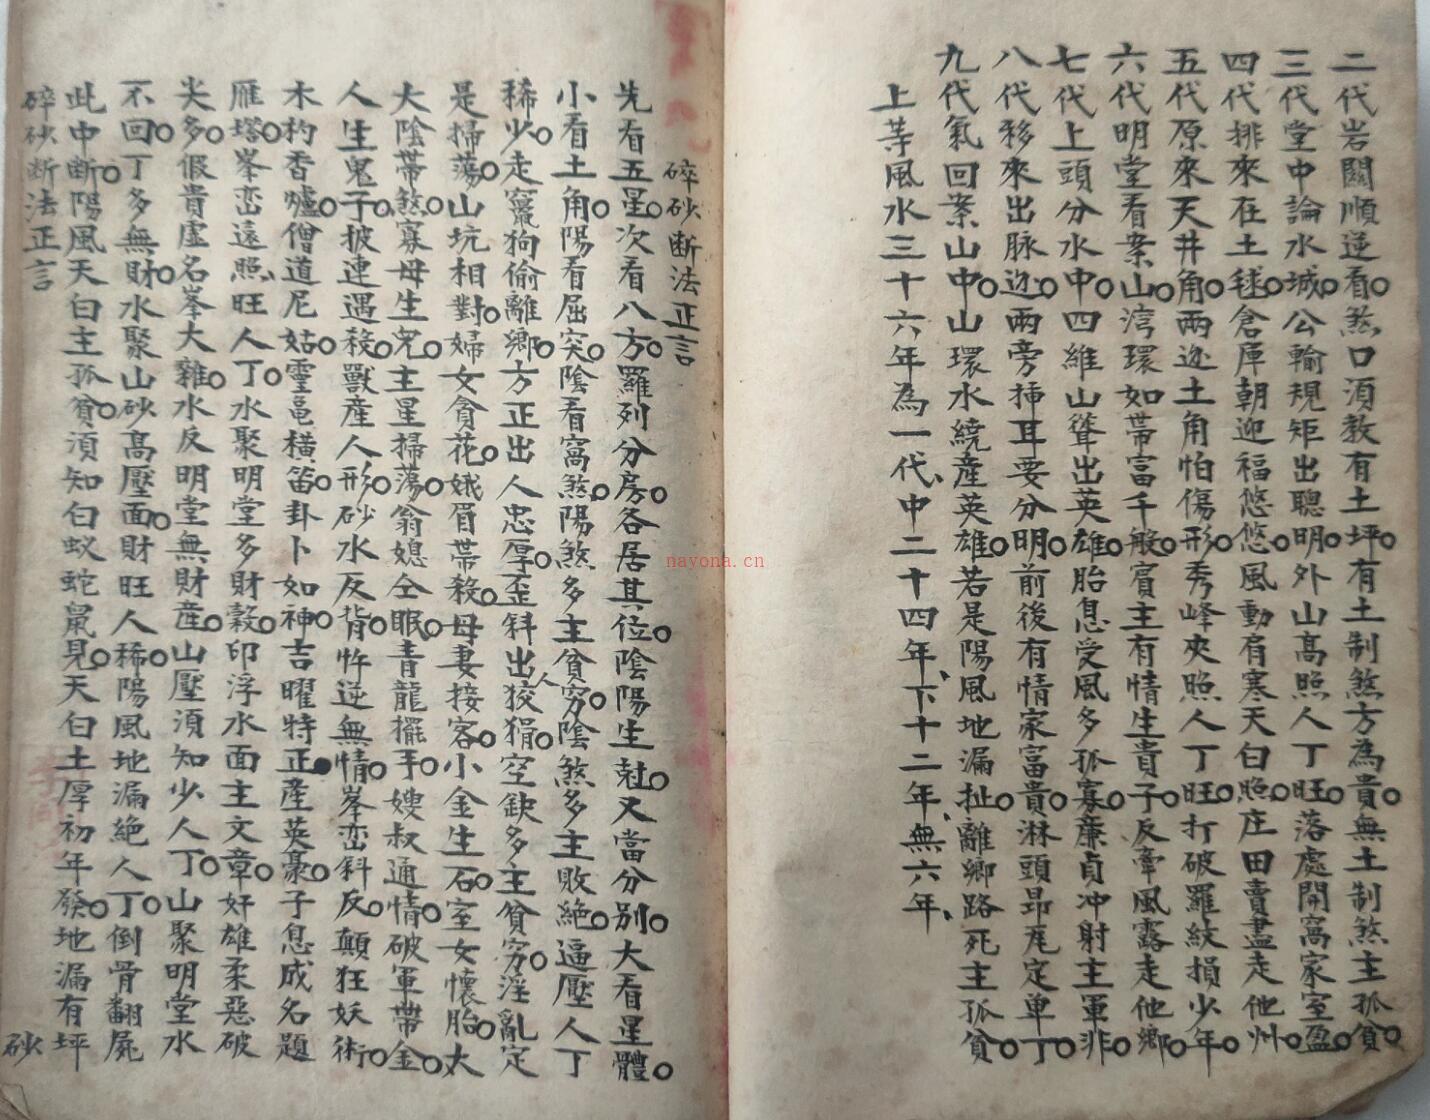 二代岩關順逆看。煞口須教有土坪。有土制煞方為貴。無土制煞主孤貧。
三代堂中論水城。公輸規矩出聰明。外山高照人丁旺。落處開窩家室盈。
四代排來在土毬。倉庫朝迎福悠悠。風動肩寒天白照。庄田賣盡走他州。
五代原來天井角。兩边土角怕傷形。秀峰夾照人丁旺。打破羅紋損少年。
六代明堂看案山。湾環如帶富千般。賓主有情生貴子。反牽風露走他鄉。
七代上頭分水中。四維山聳出英雄。胎息受風多孤寡。廉貞冲射主軍非。
八代移來出脉边。兩旁揷耳要分明。前後有情家富貴。淋頭昂尾定单丁。
九代氣回案山中。山環水繞產英雄。若是陽風地漏扯。離鄉路死主孤貧。
上等風水三十六年為一代、中二十四年、下十二年、無六年、
碎砂断法正言
先看五星。次看八方。羅列分房。各居其位。陰陽生尅。又當分别。大看星體。
小看土角。陽看屈突。陰看窩煞。陽煞多主貧窮。陰煞多主敗絶。逼壓人丁
稀少。走竄狗偷離鄉。方正出人忠厚。歪斜出人狡猾。空缺多主貧窮。淫亂定
是掃蕩。山坑相對。婦女貪花。娥眉帶殺。母妻接客。小金生石。室女懷胎。太
大陰帶煞。寡母生兒。主星掃蕩。翁媳仝眠。青龍擺手。嫂叔通情。破軍帶金。
人生鬼子。披連遇殺。獸産人形。砂水反背。忤逆無情。峯峦斜反。顛狂妖術。
木杓香爐。僧道尼姑。靈龜橫笛。卦卜如神。吉曜特正。產英豪。子息成名題
雁塔。峯峦遠照、旺人丁。水聚明堂多財穀。印浮水面主文章。奸雄柔惡破
尖多。假貴虛名峯大雜。水反明堂無財産。山壓須知少人丁。山聚明堂水
不回。丁多無財。水聚山砂高壓面。財旺人稀。陽風地漏絶人丁。倒骨翻屍
此中断。陽風天白主孤貧。須知白蚁蛇鼠見。天白土厚初年發。地漏有坪
碎砂断法正言
砂
nayona.cn